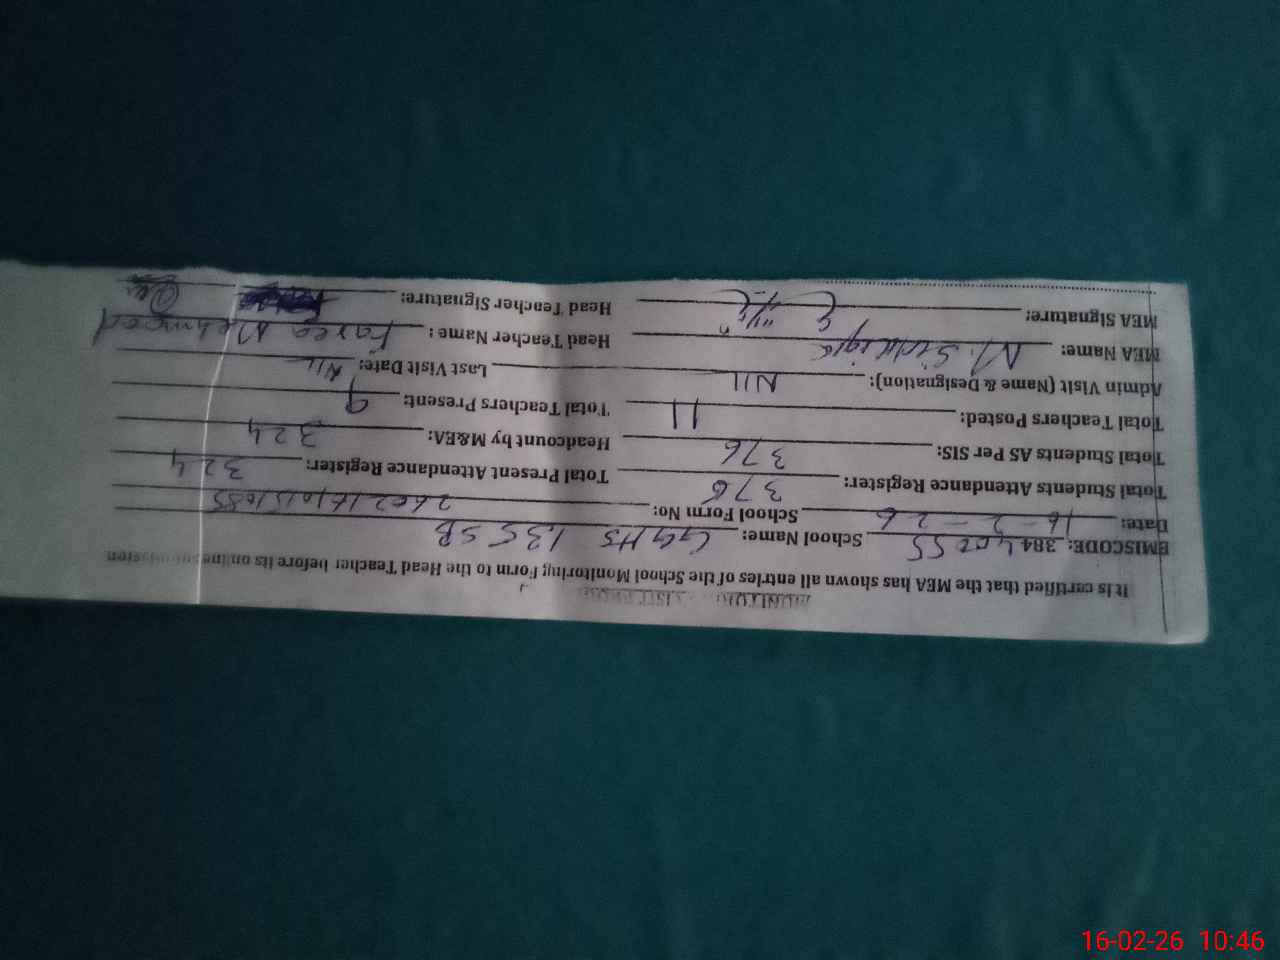 It is certified that the MEA has shown all entries of the School Monitoring Form to the Head Teacher before its online submission
EMISCODE: 384 40055 School Name: GGHS 135 SB
Date: 16-2-26 School Form No: 26021610151055
Total Students Attendance Register: 376 Total Present Attendance Register: 324
Total Students AS Per SIS: 376 Headcount by M&EA: 324
Total Teachers Posted: 11 Total Teachers Present: 9
Admin Visit (Name & Designation): NIL Last Visit Date: NIL
MEA Name: M. Head Teacher Name: Mehmood
MEA Signature: Head Teacher Signature:
16-02-26 10:46